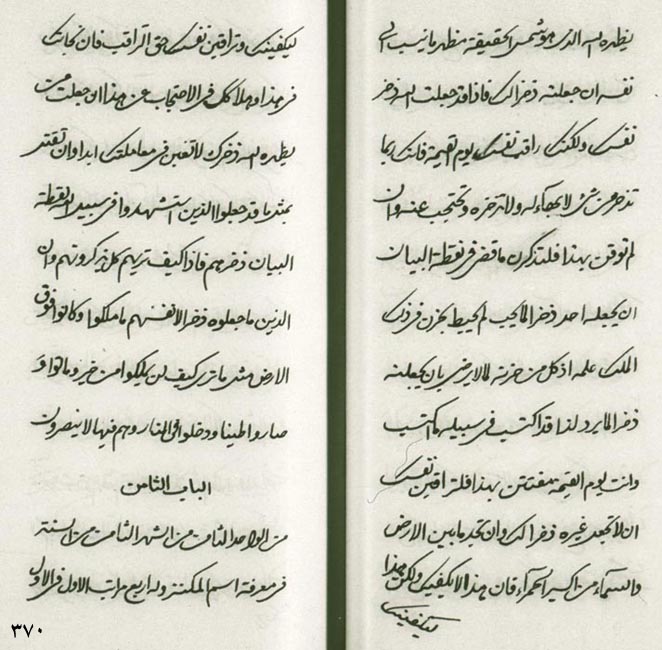 يظهره الله الذي هو شمس الحقيقة مظهر ما ينسب الى
نفسه ان جعلته ذخرا لك فاذا قد جعلت الله ذخر
نفسك ولكنك راقب نفسك يوم القيمة فانك ربما
تذخر من شئ لا بهاء له ولا تذخره وتحتجب عنه وان
لم توقن بهذا فلتذكرن ما قضى في نقطة البيان
ان يجعله احد ذخرا لما يحب لم يحيط بحزن في ذلك
الملك علمه اذ كل من حزنه لما لا يرضى بان يجعلنه
ذخرا لما يرد لذا قد اكتسب في سبيله ما اكتسب
وانت يوم القيمة مفتتن بهذا فلتراقبن نفسك
ان لا تجعل غيره ذخرا لك وان تجد ما بين الارض
والسماء من اكسير الحمراء فان هذا لا يكفينك ولكن بهذا
ليكفينك
ليكفينك وتراقبن نفسك حق الراقب فان نجاتك
في هذا وهلاك كل في الاحتجاب عن هذا لو جعلت من
يظهره الله ذخرك لا تغبن في معاملتك ابدا وان تقتدر
بمثل ما قد جعلوا الذين استشهدوا في سبيل الله نقطة
البيان ذخرهم فاذا كيف تريهم كل يذكرونهم وان
الذين ما جعلوه ذخرا لانفسهم ما ملكوا وكانوا فوق
الارض مثل ما ترى كيف لن يملكوا من خير وماتوا و
صاروا طينا ودخلوا في النار وهم فيها لا ينصرون
الباب الثامن
من الواحد الثامن من الشهر الثامن من السنة
في معرفة اسم المكتنز وله اربع مراتب الاول في الاول
٣٧٠